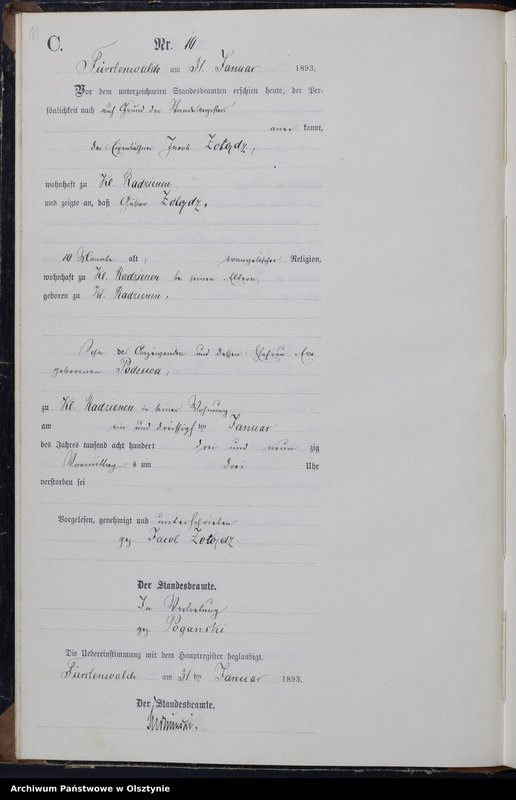 11
C.
Nr. 10
Fürstenwalde am 31. Januar 1893.
Vor dem unterzeichneten Standesbeamten erschien heute, der Per-
sönlichkeit nach auf Grund der Standesregister
aner kannt,
der Eigenkäthner Jacob Zołądz,
wohnhaft zu Kl. Radzienen,
und zeigte an, daß Gustav Zołądz,
10 Monate alt, evangelischer Religion,
wohnhaft zu Kl. Radzienen bei seinen Eltern,
geboren zu Kl. Radzienen,
Sohn des Anzeigenden und dessen Ehefrau Eva
geborenen Podeswa,
zu Kl. Radzienen in seiner Wohnung
am ein und dreißigsten Januar
des Jahres tausend acht hundert drei und neun zig
Vormittags um drei Uhr
verstorben sei
Vorgelesen, genehmigt und unterschrieben
gez. Jacob Zołądz.
Der Standesbeamte.
In Vertretung
gez. Poganski
Die Uebereinstimmung mit dem Hauptregister beglaubigt.
Fürstenwalde am 31ten Januar 1893.
Der Standesbeamte.
Archiwum Państwowe w Olsztynie